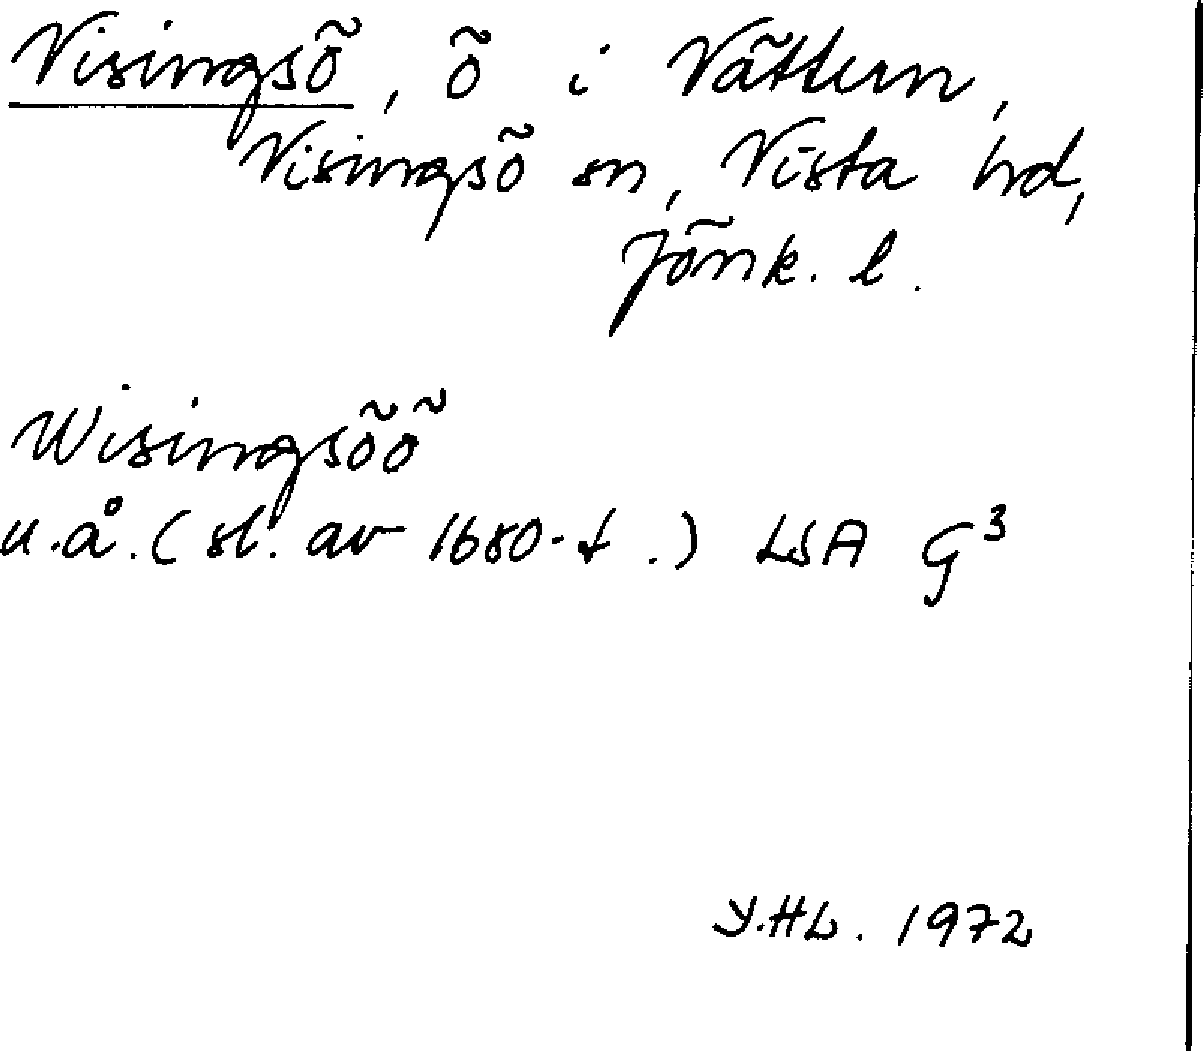 Visingsö, ö i Vättern,
Visingsö sn, Vista hd,
Jönk. l.
Wisingsöö
u.å. (sl. av 1680-t.) LSA G3
Y.HL. 1972